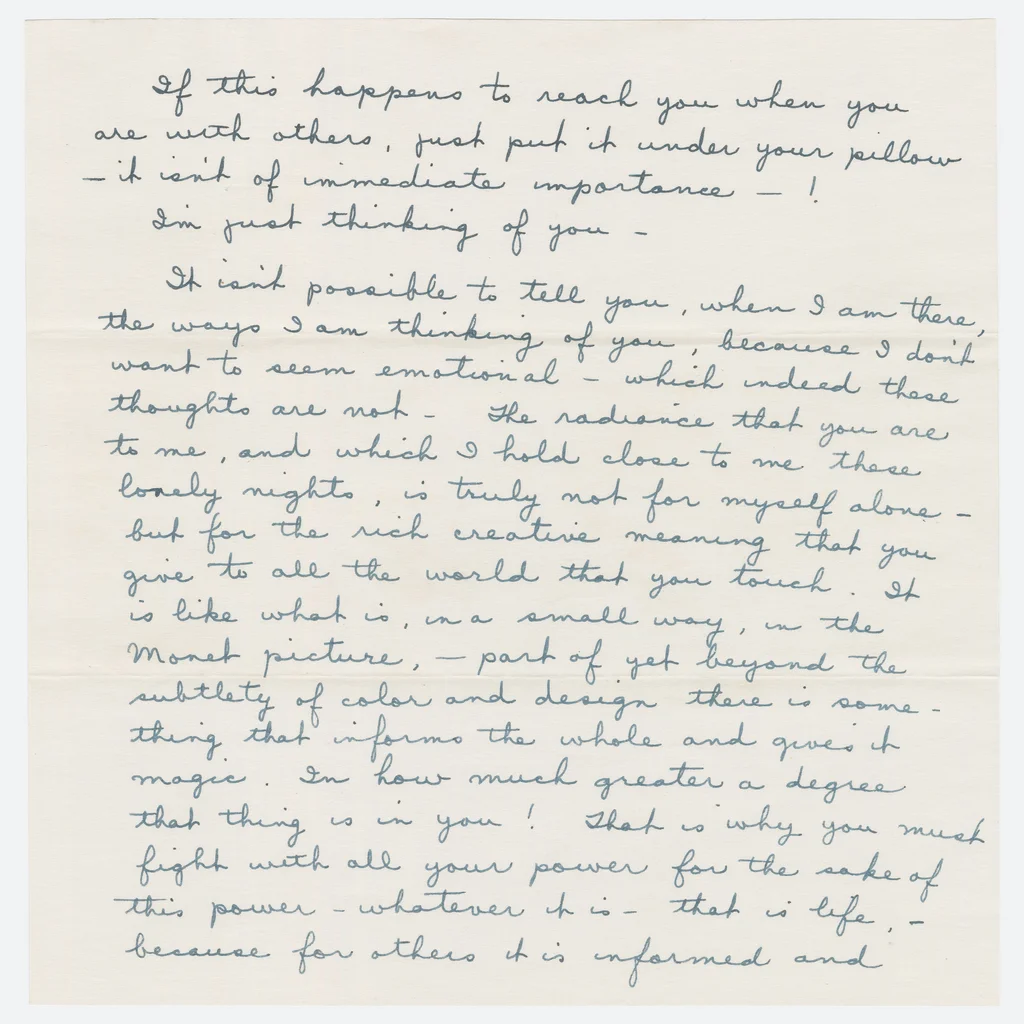 If this happens to reach you when you
are with others, just put it under your pillow
— it isn't of immediate importance — !
I'm just thinking of you —
It isn't possible to tell you, when I am there,
the ways I am thinking of you, because I don't
want to seem emotional — which indeed these
thoughts are not — The radiance that you are
to me, and which I hold close to me these
lonely nights, is truly not for myself alone —
but for the rich creative meaning that you
give to all the world that you touch. It
is like what is, in a small way, in the
Monet picture, — part of yet beyond the
subtlety of color and design there is some-
thing that informs the whole and gives it
magic. In how much greater a degree
that thing is in you! That is why you must
fight with all your power for the sake of
this power — whatever it is — that is life, —
because for others it is informed and